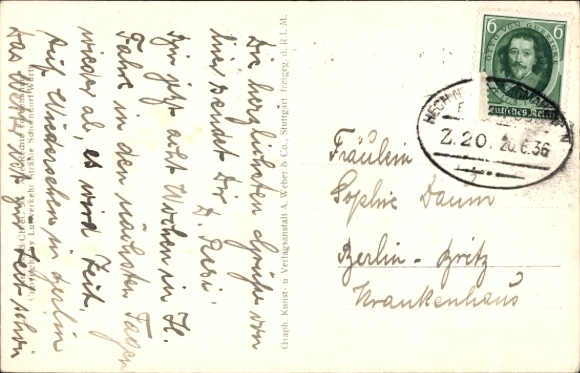 Die herzlichsten Grüße von
hier sendet Dir
D. Resi.
Bin jetzt acht Wochen in H.
Fahre in den nächsten Tagen
wieder ab, es wird Zeit,
Auf Wiedersehen in Berlin
Das Wetter ist
Graph. Kunst- u. Verlagsanstalt A. Weber & Co., Stuttgart freigeg. d. R.L.M.
6 OTTO VON GUERICKE 6
Deutsches Reich
Z. 20. 20.6.36
Fräulein
Sophie Daum
Berlin-Britz
Krankenhaus